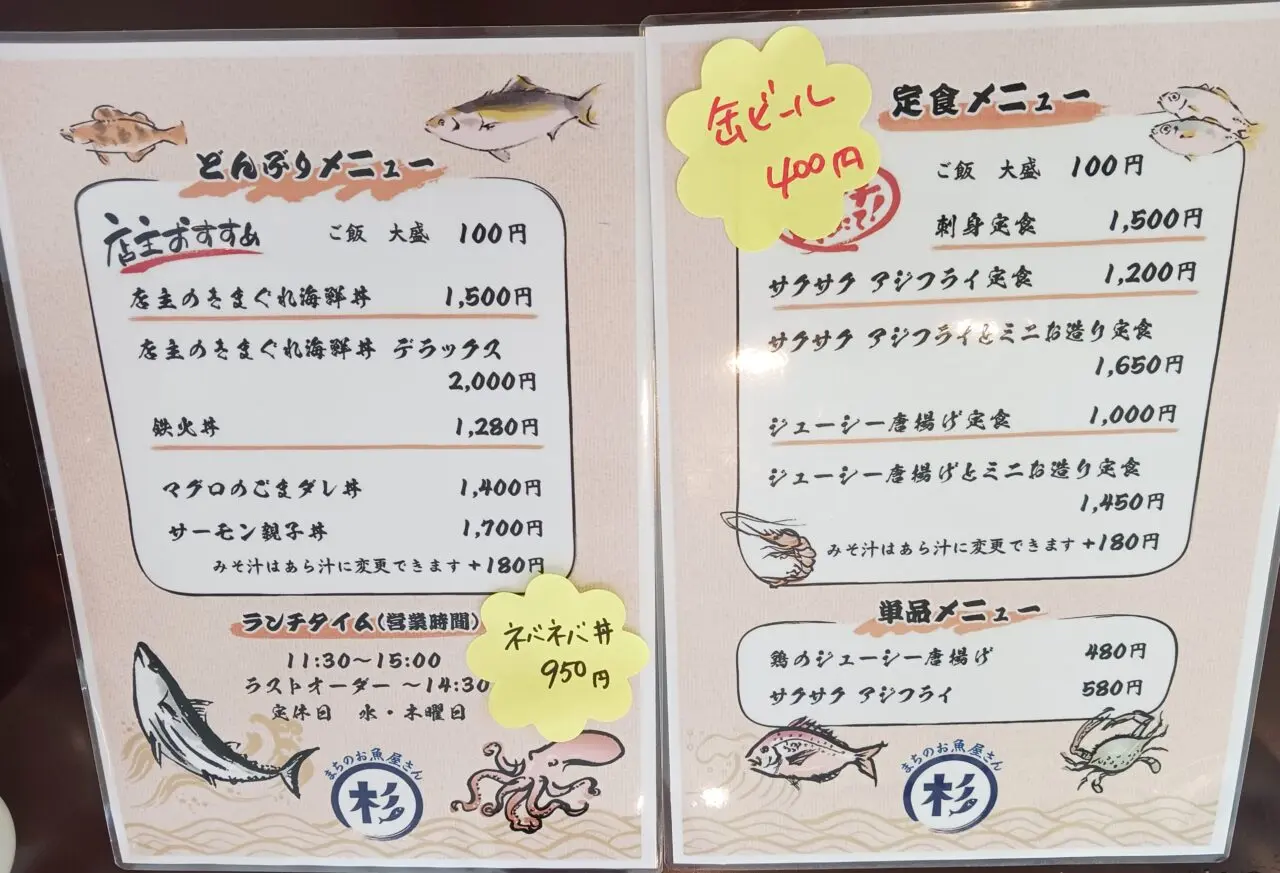 どんぶりメニュー
店主おすすめ
ご飯 大盛 100円
店主のきまぐれ海鮮丼 1,500円
店主のきまぐれ海鮮丼 デラックス
2,000円
鉄火丼 1,280円
マグロのごまダレ丼 1,400円
サーモン親子丼 1,700円
みそ汁はあら汁に変更できます +180円
ランチタイム(営業時間)
11:30～15:00
ラストオーダー ～14:30
定休日 水・木曜日
ネバネバ丼
950円
まちのお魚屋さん
杉
缶ビール
400円
定食メニュー
ご飯 大盛 100円
刺身定食 1,500円
サクサク アジフライ定食 1,200円
サクサク アジフライとミニお造り定食
1,650円
ジューシー唐揚げ定食 1,000円
ジューシー唐揚げとミニお造り定食
1,450円
みそ汁はあら汁に変更できます +180円
単品メニュー
鶏のジューシー唐揚げ 480円
サクサク アジフライ 580円
まちのお魚屋さん
杉